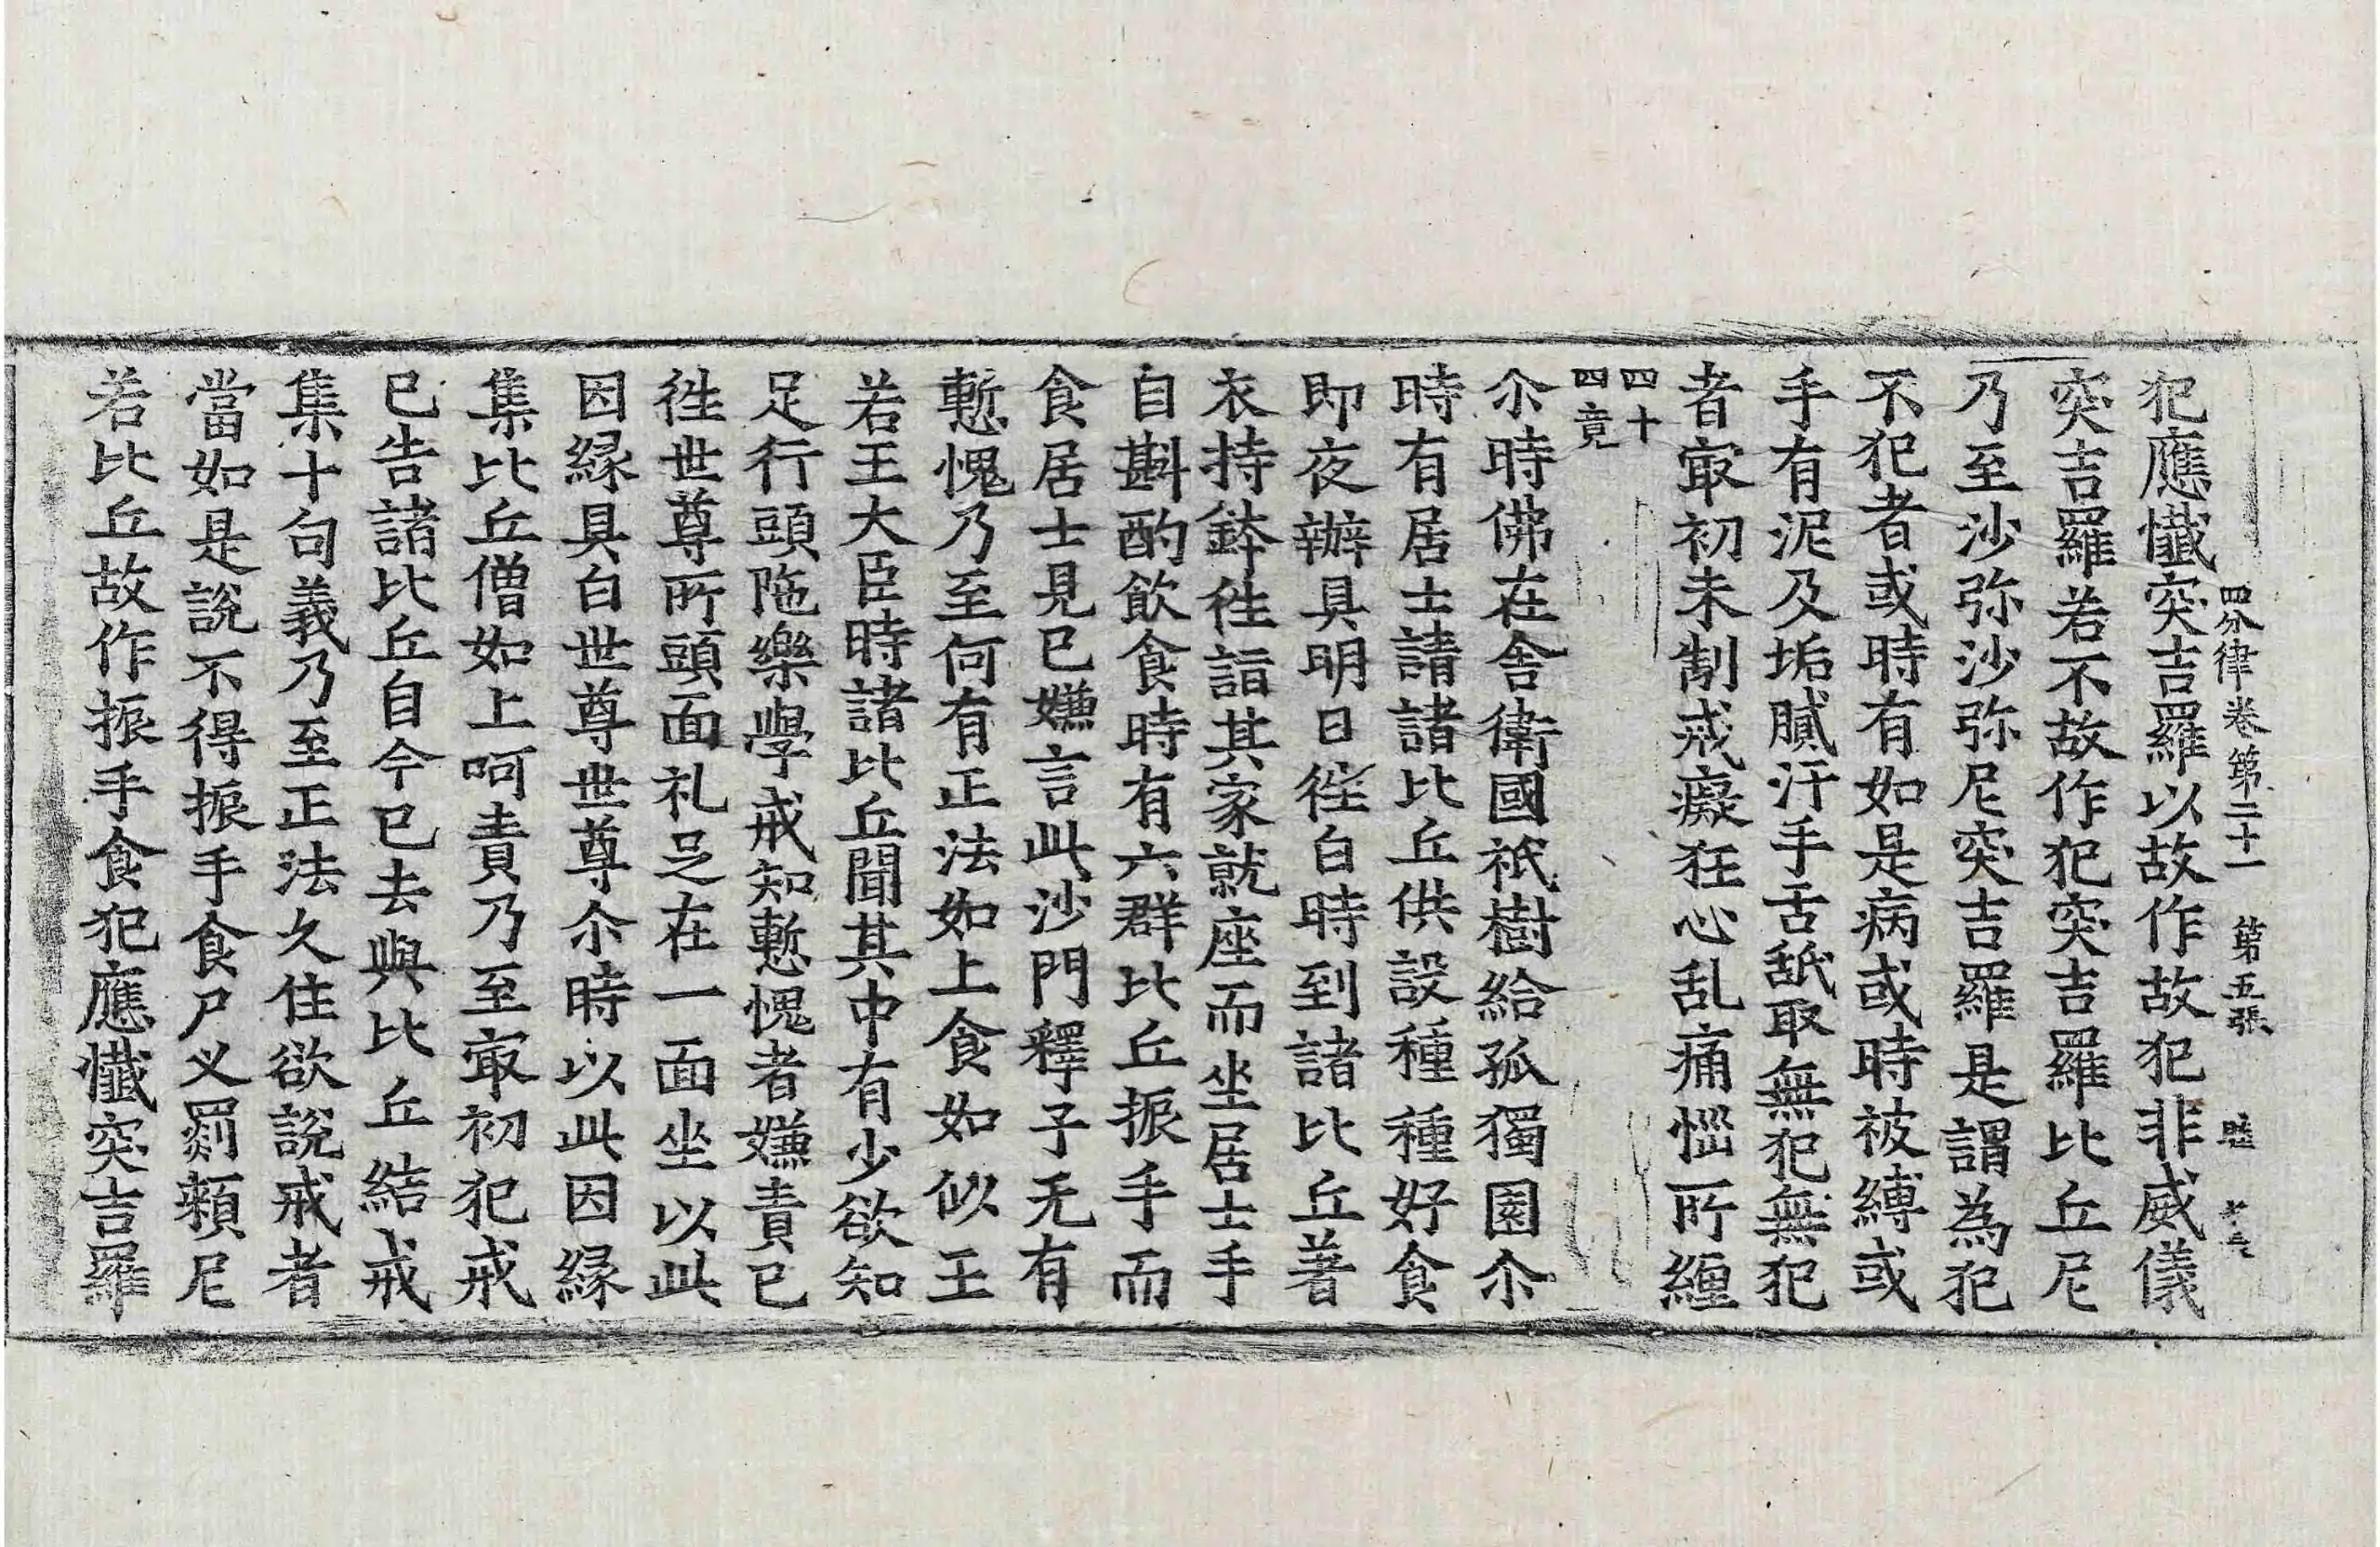 四分律卷第二十一 第五張
犯應懺突吉羅以故作故犯非威儀
突吉羅若不故作犯突吉羅比丘尼
乃至沙弥沙弥尼突吉羅是謂為犯
不犯者或時有如是病或時被縛或
手有泥及垢膩汙手舌舐取無犯無犯
者㝡初未制戒癡狂心乱痛惱所纏
四十
四竟
尒時佛在舎衛國祇樹給孤獨園尒
時有居士請諸比丘供設種種好食
即夜辦具明日徃白時到諸比丘著
衣持鉢徃詣其家就座而坐居士手
自斟酌飲食時有六群比丘振手而
食居士見已嫌言此沙門釋子无有
慙愧乃至何有正法如上食如似王
若王大臣時諸比丘聞其中有少欲知
足行頭陁樂學戒知慙愧者嫌責已
徃世尊所頭面礼足在一面坐以此
因緣具白世尊世尊尒時以此因緣
集比丘僧如上呵責乃至㝡初犯戒
已告諸比丘自今已去與比丘結戒
集十句義乃至正法久住欲說戒者
當如是說不得振手食尸叉罽頼尼
若比丘故作振手食犯應懺突吉羅